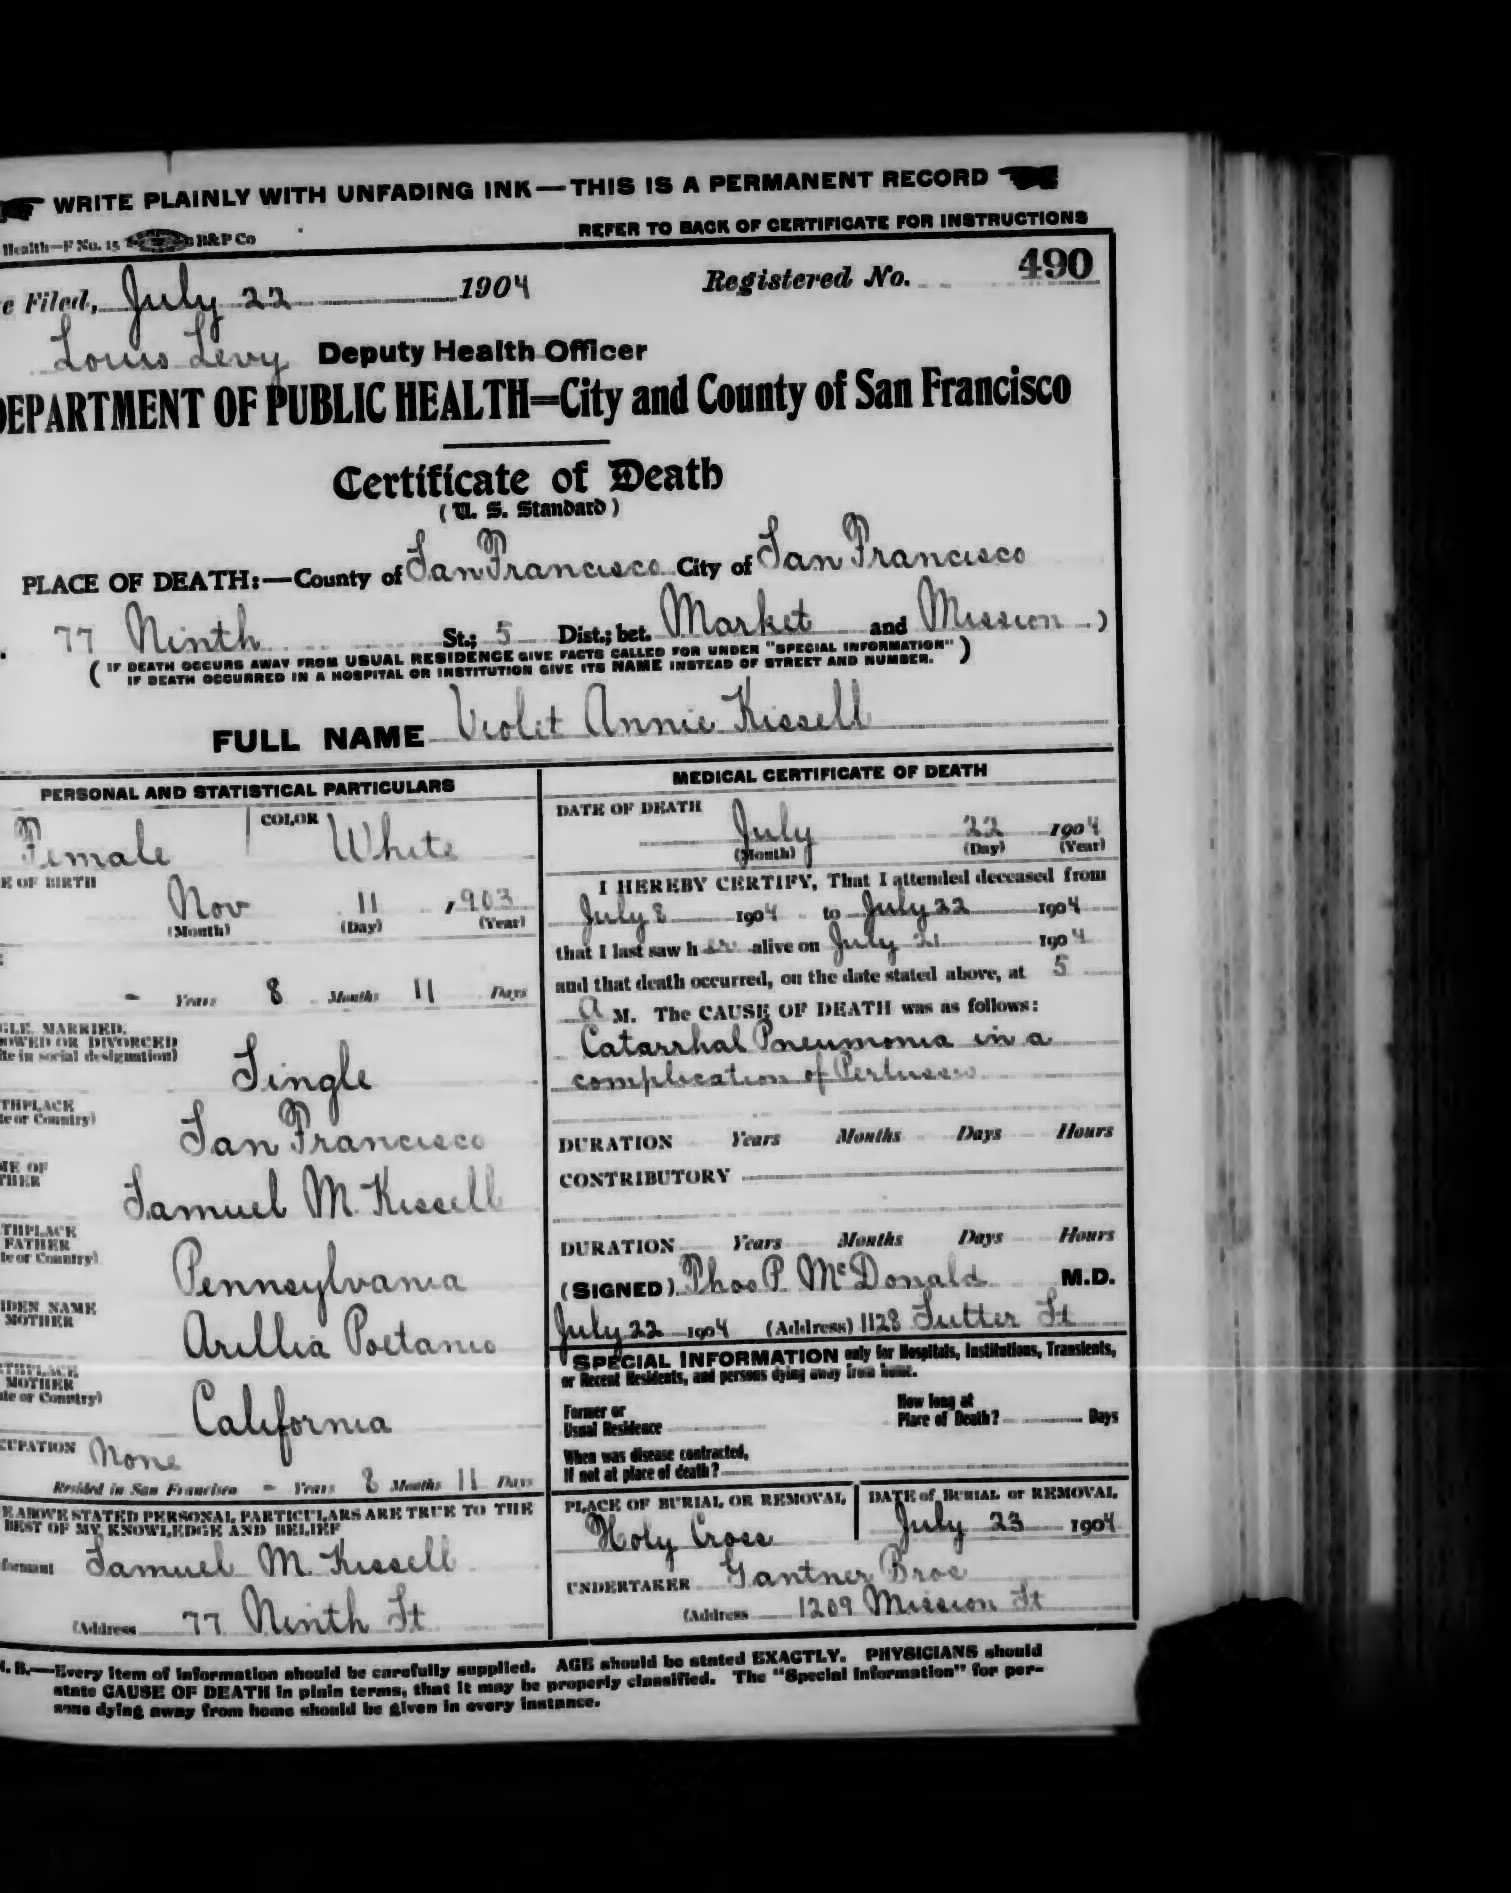 WRITE PLAINLY WITH UNFADING INK—THIS IS A PERMANENT RECORD
Health—F No. 15 B&P Co REFER TO BACK OF CERTIFICATE FOR INSTRUCTIONS
e Filed, July 22 1904 Registered No. 490
Louis Levy Deputy Health Officer
DEPARTMENT OF PUBLIC HEALTH=City and County of San Francisco
Certificate of Death
(U. S. Standard)
PLACE OF DEATH:—County of San Francisco City of San Francisco
. 77 Ninth St.; 5 Dist.; bet. Market and Mission )
( IF DEATH OCCURS AWAY FROM USUAL RESIDENCE GIVE FACTS CALLED FOR UNDER "SPECIAL INFORMATION" )
IF DEATH OCCURRED IN A HOSPITAL OR INSTITUTION GIVE ITS NAME INSTEAD OF STREET AND NUMBER.
FULL NAME Violet Annie Kissell
PERSONAL AND STATISTICAL PARTICULARS
Female COLOR White
E OF BIRTH
Nov 11 , 903
(Month) (Day) (Year)
- Years 8 Months 11 Days
GLE, MARRIED,
OWED OR DIVORCED
te in social designation)
Single
THPLACE
te or Country)
San Francisco
ME OF
THER
Samuel M. Kissell
THPLACE
FATHER
te or Country)
Pennsylvania
IDEN NAME
MOTHER
Arillia
THPLACE
MOTHER
te or Country)
California
CUPATION None
Resided in San Francisco - Years 8 Months 11 Days
E ABOVE STATED PERSONAL PARTICULARS ARE TRUE TO THE
BEST OF MY KNOWLEDGE AND BELIEF
formant Samuel M. Kissell
(Address 77 Ninth St
MEDICAL CERTIFICATE OF DEATH
DATE OF DEATH
July 22 1904
(Month) (Day) (Year)
I HEREBY CERTIFY, That I attended deceased from
July 8 1904 to July 22 1904
that I last saw h er alive on July 21 1904
and that death occurred, on the date stated above, at 5
A M. The CAUSE OF DEATH was as follows:
Catarrhal Pneumonia in a
complication of Pertussis
DURATION Years Months Days Hours
CONTRIBUTORY
DURATION Years Months Days Hours
(SIGNED) Thos P. McDonald M.D.
July 22 1904 (Address) 1128 Sutter St
SPECIAL INFORMATION only for Hospitals, Institutions, Transients,
or Recent Residents, and persons dying away from home.
Former or
Usual Residence
How long at
Place of Death? Days
When was disease contracted,
If not at place of death?
PLACE OF BURIAL OR REMOVAL
Holy Cross
DATE of BURIAL or REMOVAL
July 23 1904
UNDERTAKER Gantner Bros
(Address 1209 Mission St
N. B.—Every item of information should be carefully supplied. AGE should be stated EXACTLY. PHYSICIANS should
state CAUSE OF DEATH in plain terms, that it may be properly classified. The "Special Information" for per-
sons dying away from home should be given in every instance.